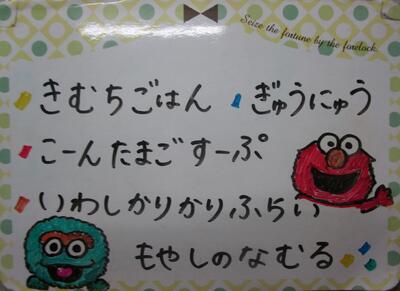 Seize the fortune by the forelock.
きむちごはん ぎゅうにゅう
こーんたまごすーぷ
いわしかりかりふらい
もやしのなむる